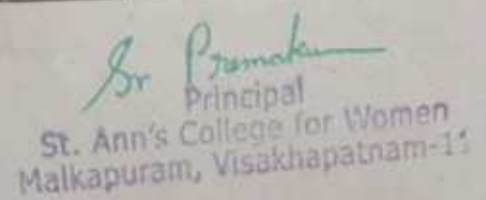 Sr Premaku
Principal
St. Ann's College for Women
Malkapuram, Visakhapatnam-11